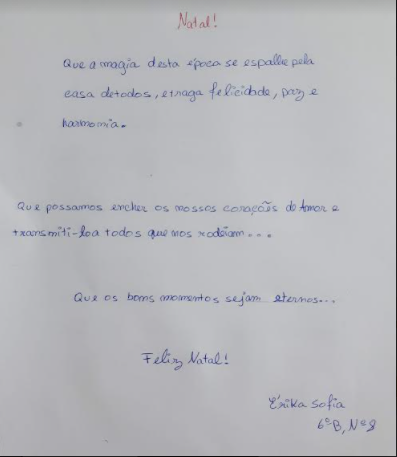 Natal!
Que a magia desta época se espalhe pela
casa detodos, etraga felicidade, paz e
harmomia.
Que possamos encher os nossos corações de Amor e
transmiti-loa todos que nos rodeiam...
Que os bons momentos sejam eternos...
Feliz Natal!
Érika Sofia
6ºB, Nº8